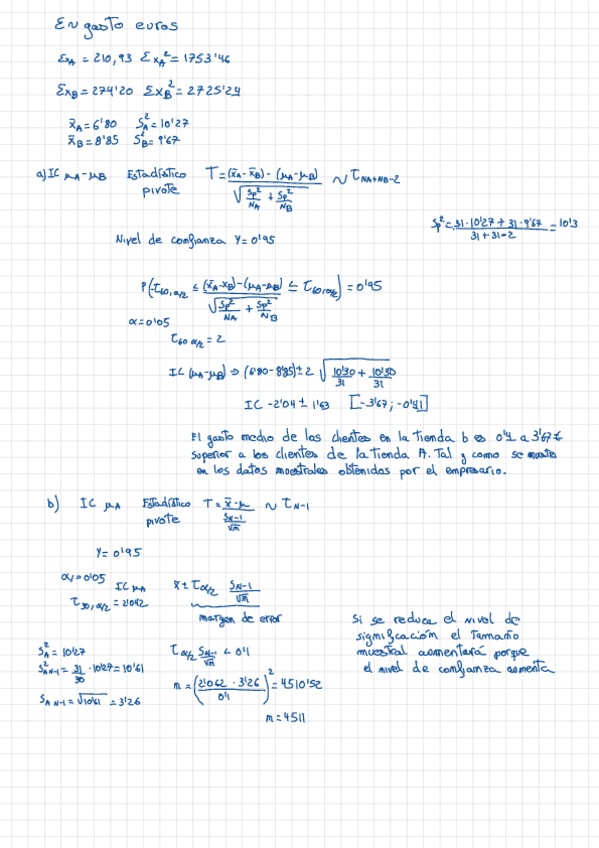 En gasto euros
Σx_A = 210,93 Σx_A² = 1753'46
Σx_B = 274'20 Σx_B² = 2725'24
x̄_A = 6'80 S_A² = 10'27
x̄_B = 8'85 S_B² = 9'67
a) IC μ_A-μ_B Estadístico pivote T = ((x̄_A - x̄_B) - (μ_A-μ_B)) / √(Sp²/N_A + Sp²/N_B) ~ T_{N_A+N_B-2}
Sp² = (31·10'27 + 31·9'67)/(31+31-2) = 10'3
Nivel de confianza γ = 0'95
P(-T_{60,α/2} ≤ ((x̄_A-x_B)-(μ_A-μ_B)) / √(Sp²/N_A + Sp²/N_B) ≤ T_{60,α/2}) = 0'95
α = 0'05
T_{60 α/2} = 2
IC (μ_A-μ_B) ⇒ (6'80 - 8'85) ± 2 √(10'30/31 + 10'30/31)
IC -2'04 ± 1'63 [-3'67; -0'41]
El gasto medio de los clientes en la tienda b es 0'41 a 3'67€
superior a los clientes de la tienda A. Tal y como se muestra
en los datos muestrales obtenidos por el empresario.
b) IC μ_A Estadístico pivote T = (x̄-μ)/(S_{N-1}/√m) ~ T_{N-1}
γ = 0'95
α = 0'05 IC μ_A x ± T_{α/2} S_{N-1}/√m
T_{30,α/2} = 2'042
margen de error
S_A² = 10'27
S²_{A N-1} = 31/30 · 10'27 = 10'61
S_{A N-1} = √10'61 = 3'26
T_{α/2} S_{N-1}/√m < 0'1
m = (2'062 · 3'26 / 0'1)² = 4510'52
m = 4511
Si se reduce el nivel de
significación el tamaño
muestral aumentará porque
el nivel de confianza aumenta